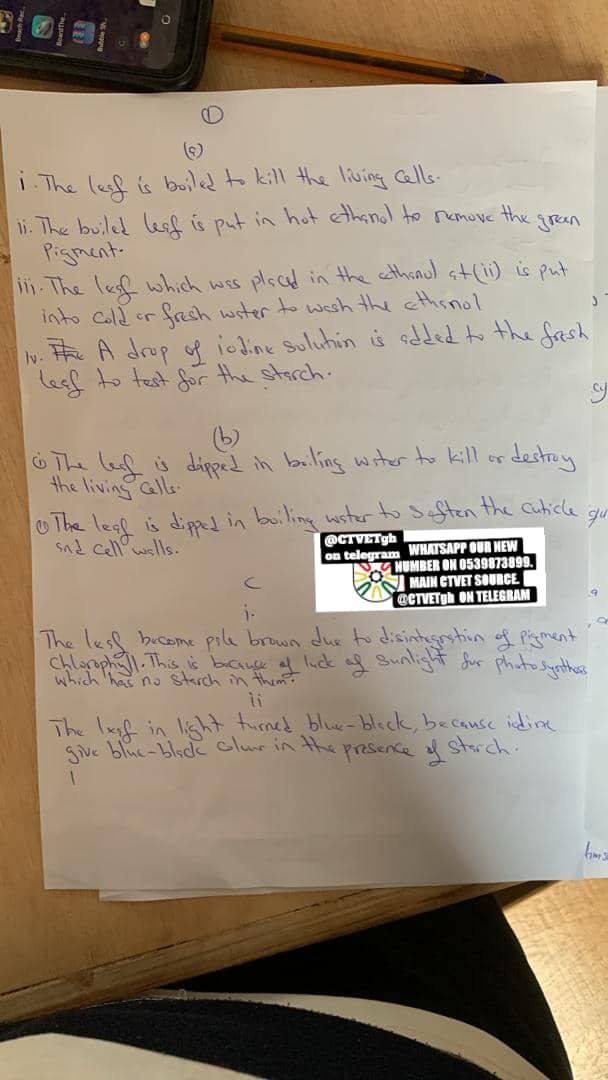 Beach Rac...
BoardThe...
Bubble Sh...
1
(a)
i. The leaf is boiled to kill the living cells.
ii. The boiled leaf is put in hot ethanol to remove the green
Pigment.
iii. The leaf which was placed in the ethanol at (ii) is put
into cold or fresh water to wash the ethanol
iv. The A drop of iodine solution is added to the fresh
leaf to test for the starch.
(b)
i The leaf is dipped in boiling water to kill or destroy
the living cells.
ii The leaf is dipped in boiling water to soften the cuticle
and cell walls.
@CTVETgh
on telegram
WHATSAPP OUR NEW
NUMBER ON 0539873899.
MAIN CTVET SOURCE.
@CTVETgh ON TELEGRAM
c
i.
The leaf become pale brown due to disintegration of pigment
Chlorophyll. This is because of lack of sunlight for photosynthesis
which has no starch in them.
ii
The leaf in light turned blue-black, because iodine
give blue-black colour in the presence of starch.